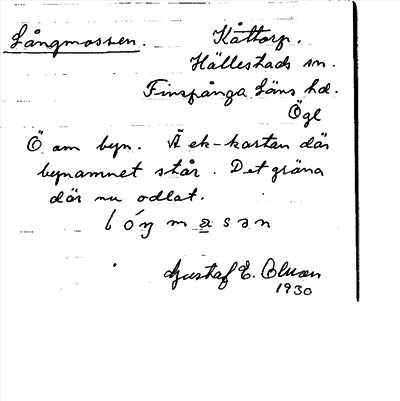 Långmossen.
Kåttorp.
Hällestads sn.
Finspånga Läns hd.
Ögl
Ö om byn. Å ek-kartan där
bynamnet står. Det gröna
där nu odlat.
lóŋmasən
Gustaf E. Olsson
1930